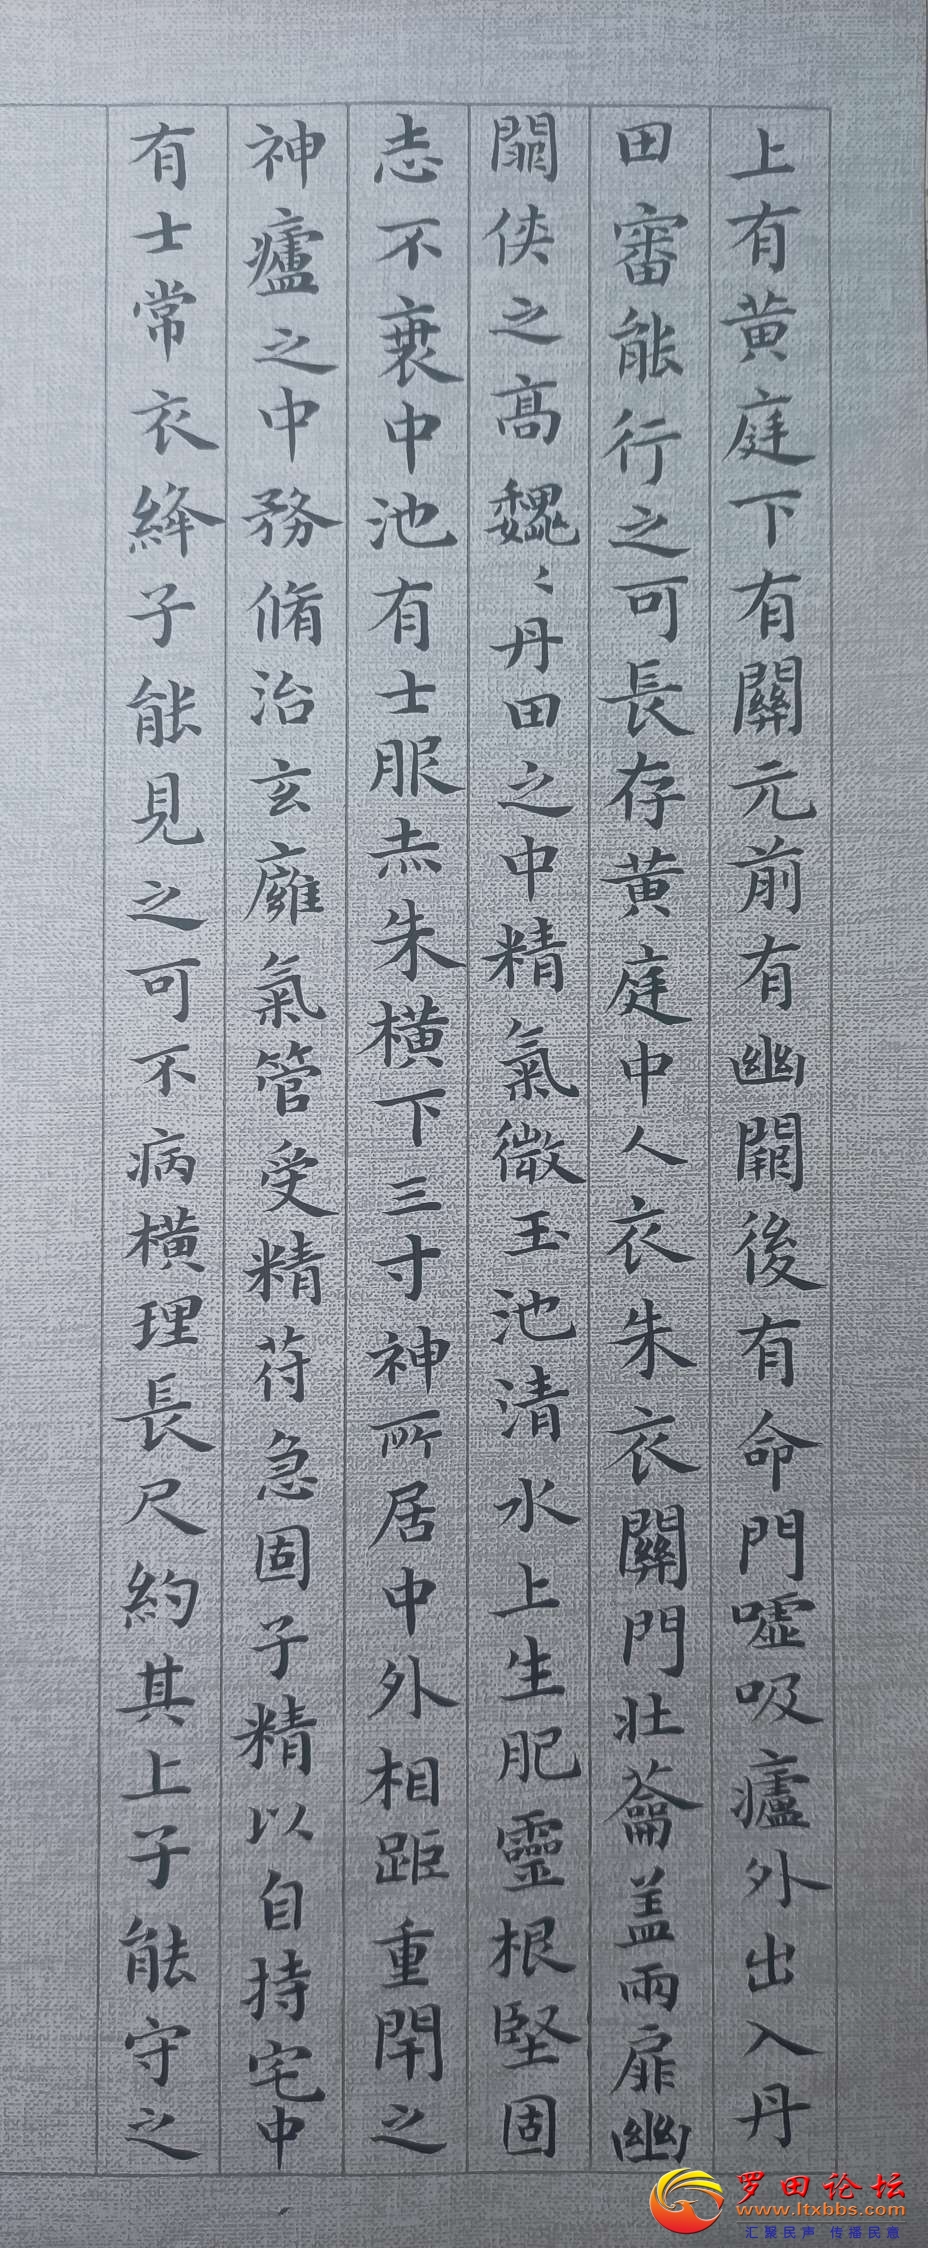 上有黄庭下有關元前有幽闕後有命門嘘吸廬外出入丹
田審能行之可長存黄庭中人衣朱衣關門壯蘥盖兩扉幽
闕俠之高魏〻丹田之中精氣微玉池清水上生肥靈根堅固
志不衰中池有士服赤朱横下三寸神所居中外相距重閇之
神廬之中務脩治玄廱氣管受精符急固子精以自持宅中
有士常衣絳子能見之可不病横理長尺約其上子能守之
罗田论坛
www.ltxbbs.com
汇聚民声 传播民意